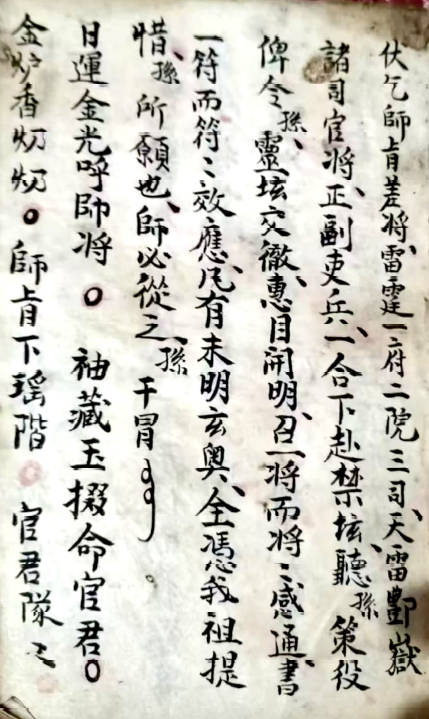 伏乞師旨差將、雷霆一府二院三司、天雷酆嶽
諸司官將、正副吏兵、一合下赴禁壇、聽孫策役
俾令孫、靈壇交徹、惠目開明、召一將而將〻感通、書
一符而符〻效應、凡有未明玄奥、全憑我祖提
惜、孫所願也、師必從之、孫干冒
日運金光呼帥將○袖藏玉掇命官君○
金炉香㓛㓛○師旨下瑶階○官君隊〻